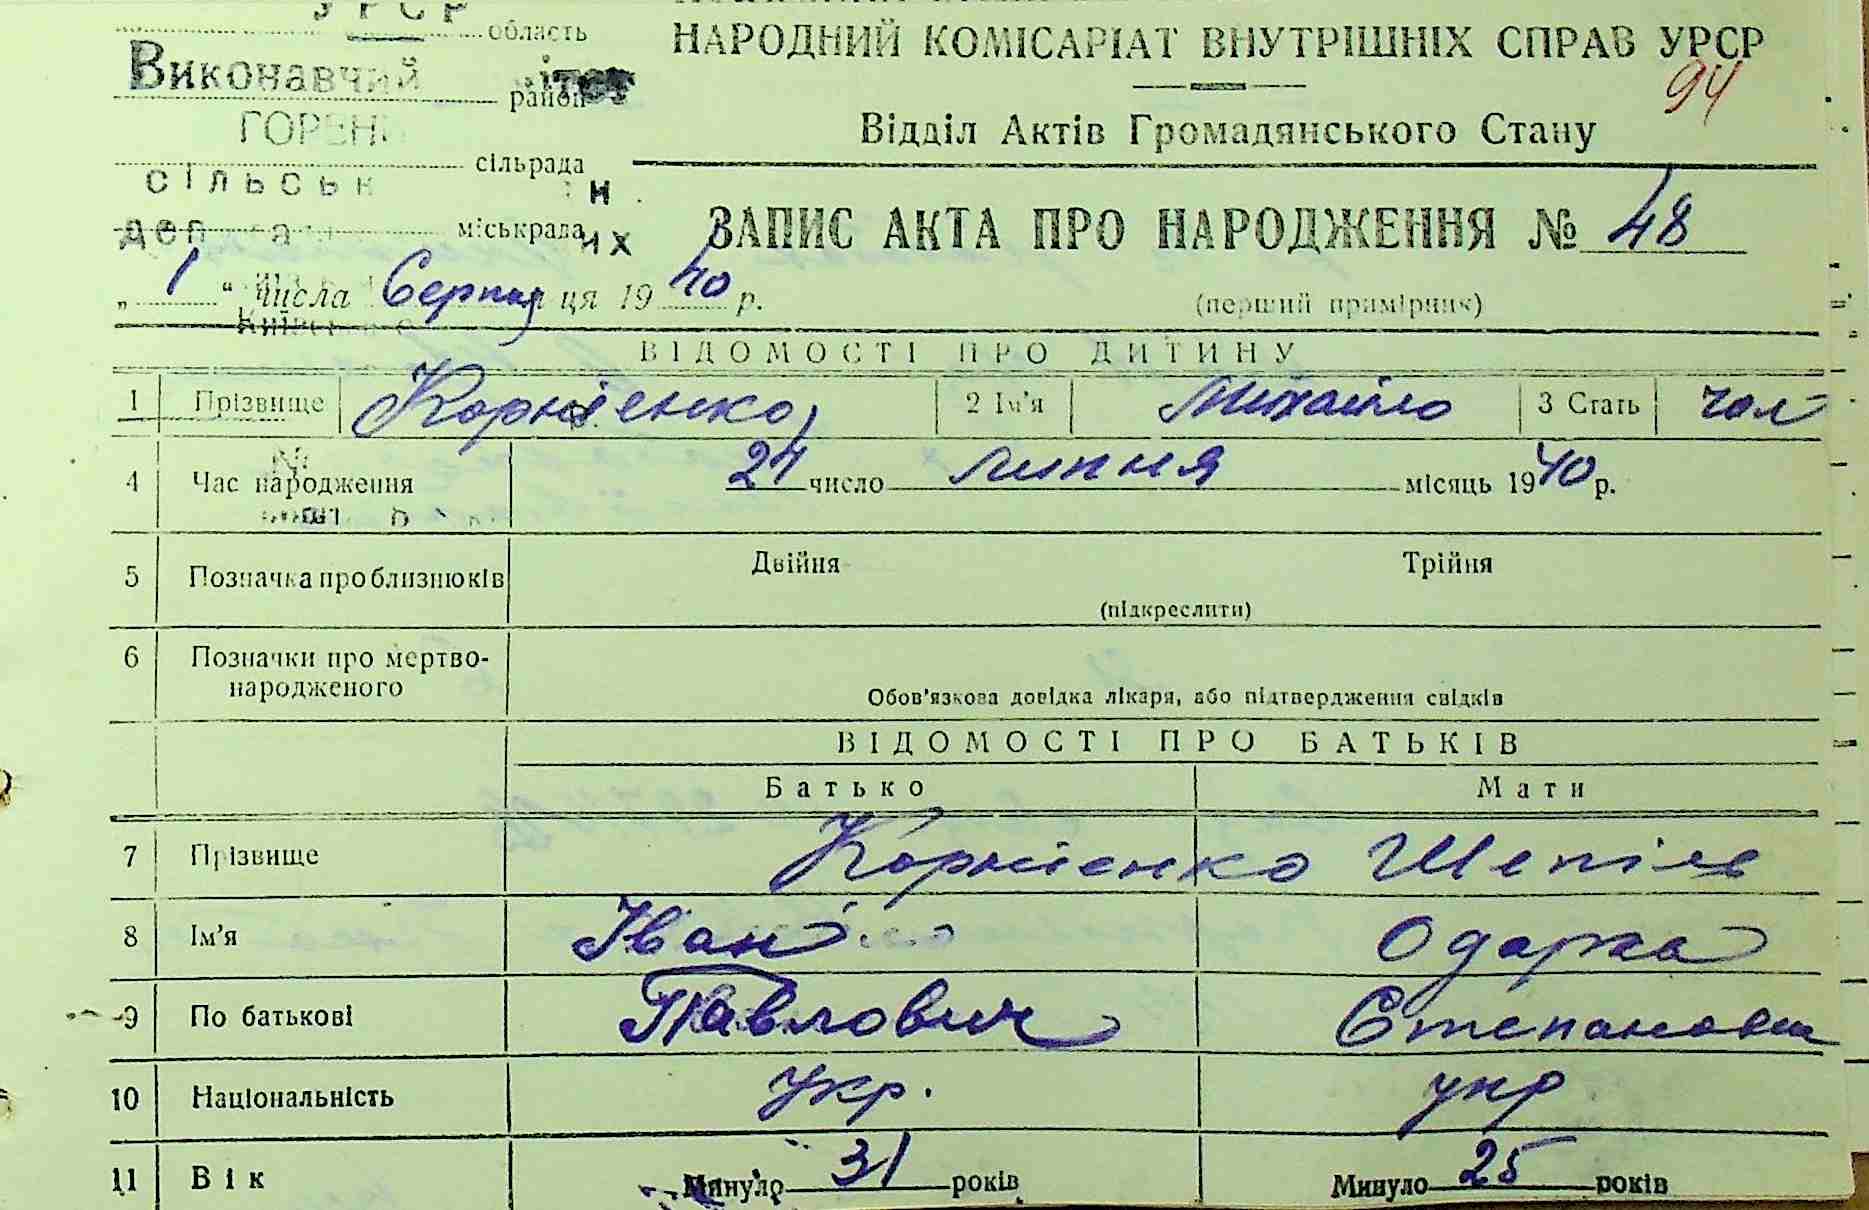 УРСР
область
НАРОДНИЙ КОМІСАРІАТ ВНУТРІШНІХ СПРАВ УРСР
94
Виконавчий
район
Відділ Актів Громадянського Стану
ГОРЕН
сільрада
сільськ н
міськрада
деп а их
ЗАПИС АКТА ПРО НАРОДЖЕННЯ № 48
„ 1 “ числа Серпня ця 1940 р.
(перший примірник)
ВІДОМОСТІ ПРО ДИТИНУ
1 Прізвище Корнієнко 2 Ім'я Михайло 3 Стать чол
4 Час народження 24 число липня місяць 1940 р.
5 Позначка про близнюків Двійня Трійня
(підкреслити)
6 Позначки про мертво-
народженого
Обов'язкова довідка лікаря, або підтвердження свідків
ВІДОМОСТІ ПРО БАТЬКІВ
Батько Мати
7 Прізвище Корнієнко Шепіль
8 Ім'я Іван Одарка
9 По батькові Павлович Степановна
10 Національність укр. укр
11 Вік Минуло 31 років Минуло 25 років